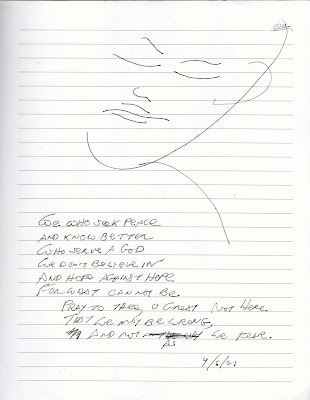 We who seek peace
and know better
who serve a God
we don't believe in
and hope against hope
for what cannot be.
Pray to thee, o great not here
that we may be wrong,
and not
as we fear.